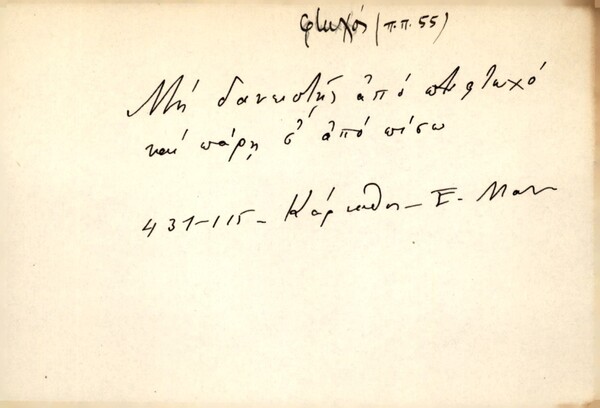 φτωχός (π.π. 55)
Μή δανειστῆς ἀπό φτωχό
καί πάρῃ σ' ἀπό πίσω
431-115- Κάρπαθος- Ε. Μαν